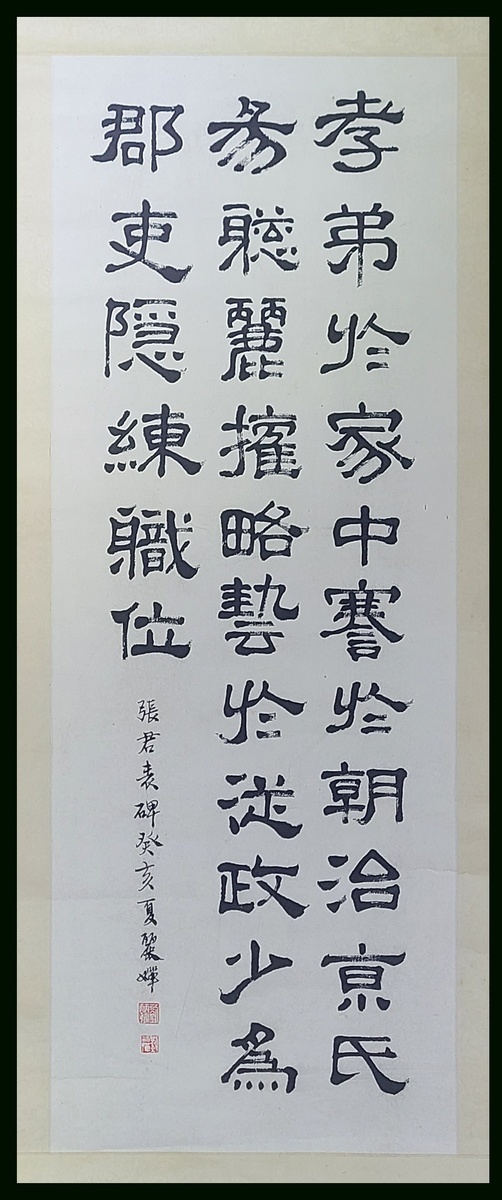 孝弟於家中謇於朝治京氏
易聰麗權略藝於從政少為
郡吏隱練職位
張君表碑癸亥夏麗嬋